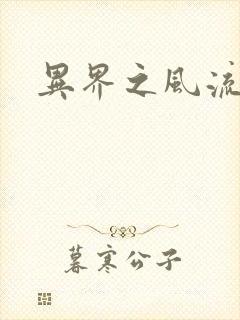 異界之風流
暮寒公子